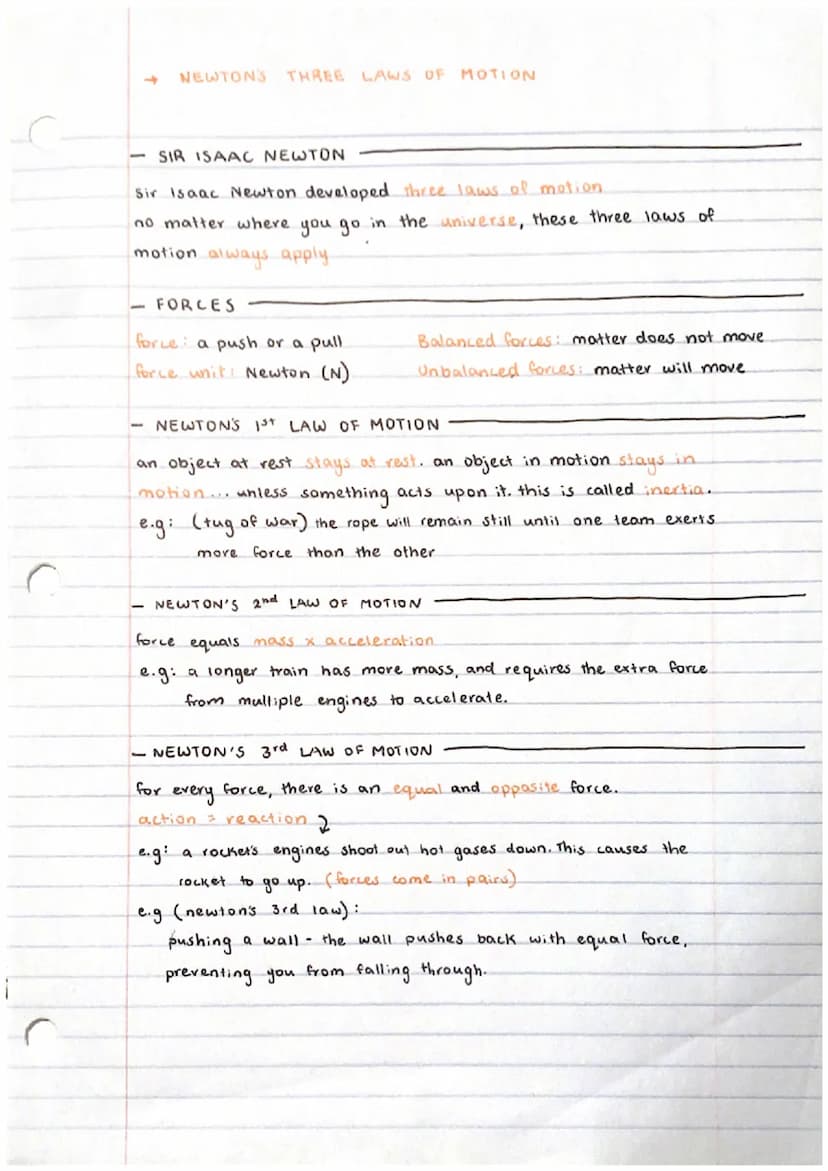 → NEWTON'S THREE LAWS OF MOTION
– SIR ISAAC NEWTON
Sir Isaac Newton developed three laws of motion
no matter where you go in the universe, these three laws of
motion always apply
– FORCES
force: a push or a pull Balanced forces: matter does not move
force unit: Newton (N) Unbalanced forces: matter will move
– NEWTON'S 1st LAW OF MOTION
an object at rest stays at rest. an object in motion stays in
motion... unless something acts upon it. this is called inertia.
e.g: (tug of war) the rope will remain still until one team exerts
more force than the other
– NEWTON'S 2nd LAW OF MOTION
force equals mass x acceleration
e.g: a longer train has more mass, and requires the extra force
from multiple engines to accelerate.
– NEWTON'S 3rd LAW OF MOTION
for every force, there is an equal and opposite force.
action = reaction ⤵
e.g: a rocket's engines shoot out hot gases down. This causes the
rocket to go up. (forces come in pairs)
e.g (newton's 3rd law):
pushing a wall - the wall pushes back with equal force,
preventing you from falling through.